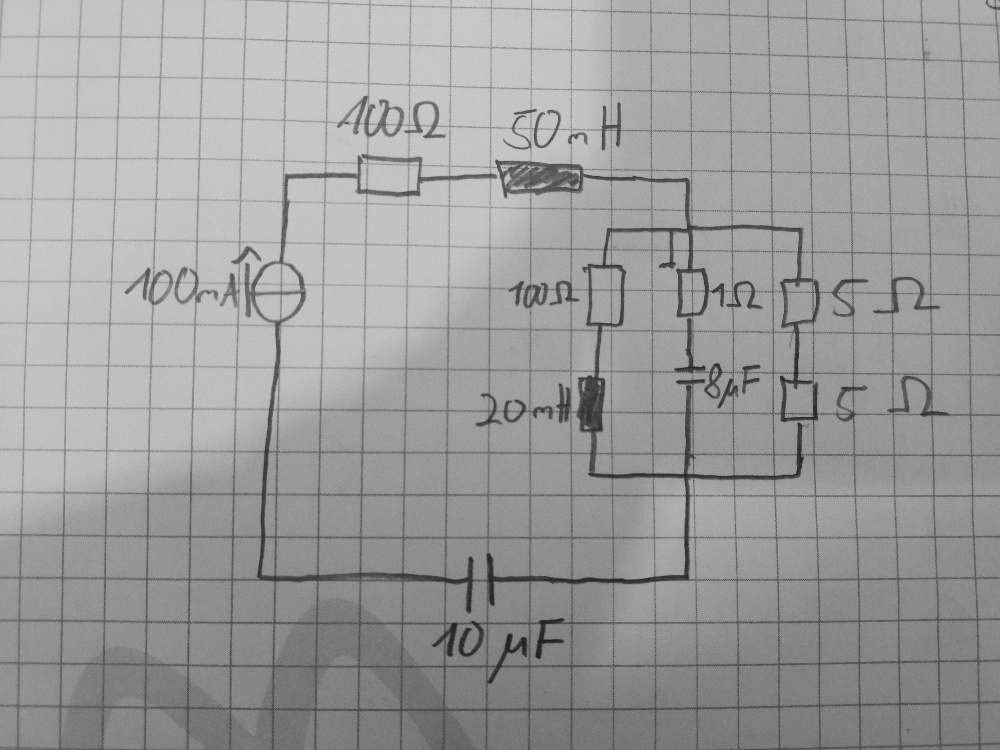 100Ω
50mH
100mA
100Ω
1Ω
5 Ω
20mH
8µF
5 Ω
10 µF